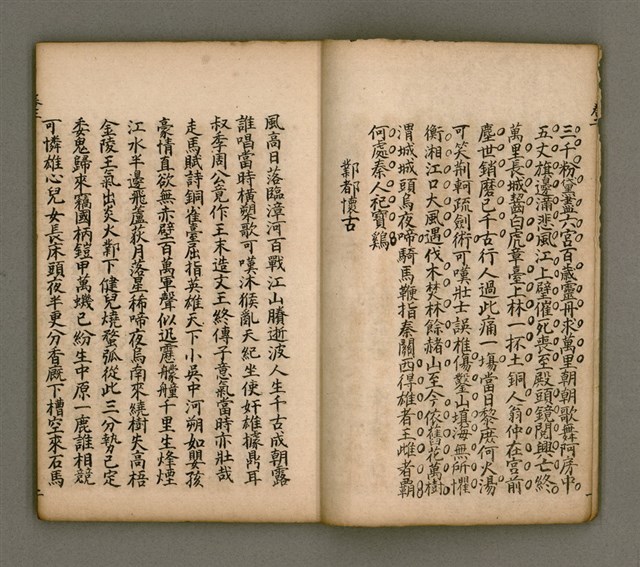 三千粉黛蓋六宮百歲靈丹求萬里朝朝歌舞阿房中
五丈旗邊滿悲風江上璧催死喪至殿頭鏡閱興亡終
萬里長城齧白虎章臺上林一抔土銅人翁仲在宮前
塵世銷磨已千古行人過此痛一塲當日黎庶何火湯
可笑荆軻疏劍術可嘆壯士誤椎傷鑿山填海無所懼
衡湘江口大風遇伐木焚林餘赭山至今依舊花萬樹
渭城城頭烏夜啼騎馬鞭指秦關西得雄者王雌者霸
何處秦人祀寶鷄
鄴都懷古
風高日落臨漳河百戰江山賸逝波人生千古成朝露
誰唱當時橫槊歌可嘆沐猴亂天紀坐使奸雄據鼎耳
叔季周公竟作王末造文王終傳子意氣當時亦壯哉
走馬賦詩銅雀臺屈指英雄天下小吳中河朔如嬰孩
豪情直欲無赤壁百萬軍聲似迅霆艨艟千里生烽煙
江水半邊飛蘆荻月落星稀啼夜烏南來繞樹失高梧
金陵王氣出炎火鄴下健兒燒蝥弧從此三分勢已定
委鬼歸來竊國柄鎧甲萬蟣已紛生中原一鹿誰相競
可憐雄心兒女長床頭夜半更分香厩下槽空來石馬